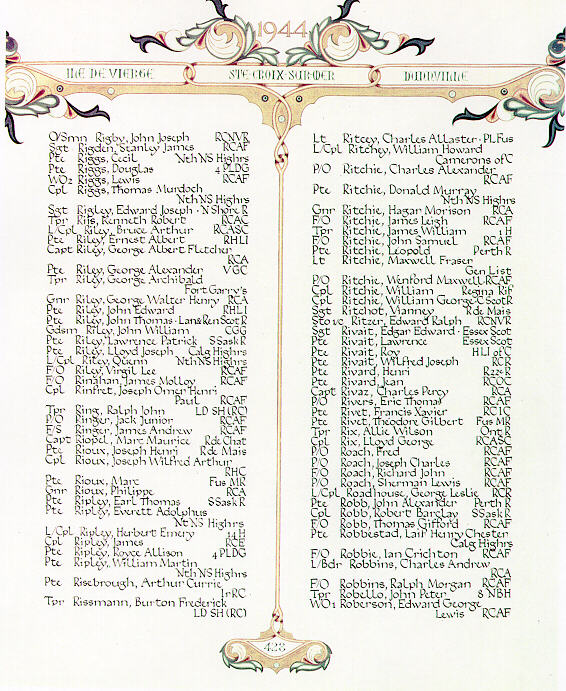 1944
ILE DE VIERGE STE·CROIX·SUR·MER DUNNVILLE
O/Smn Rigby, John Joseph RCNVR
Sgt Rigden, Stanley James RCAF
Pte Riggs, Cecil Nth NS Highrs
Pte Riggs, Douglas 4 PLDG
WO2 Riggs, Lewis RCAF
Cpl Riggs, Thomas Murdoch
Nth NS Highrs
Sgt Rigley, Edward Joseph · N Shore R
Tpr Riis, Kenneth Robert RCAC
L/Cpl Riley, Bruce Arthur RCASC
Pte Riley, Ernest Albert RHLI
Capt Riley, George Albert Fletcher
RCA
Pte Riley, George Alexander VGC
Tpr Riley, George Archibald
Fort Garry's
Gnr Riley, George Walter Henry RCA
Pte Riley, John Edward RHLI
Pte Riley, John Thomas · Lan&Ren Scot R
Gdsm Riley, John William CGG
Pte Riley, Lawrence Patrick SSask R
Pte Riley, Lloyd Joseph Calg Highrs
L/Cpl Riley, Quenn Nth NS Highrs
F/O Riley, Virgil Lee RCAF
F/O Rinahan, James Molloy RCAF
Cpl Rinfret, Joseph Omer Henri
Paul RCAF
Tpr Ring, Ralph John LD SH (RC)
P/O Ringer, Jack Junior RCAF
F/S Ringer, James Andrew RCAF
Capt Riopel, Marc Maurice R de Chat
Pte Rioux, Joseph Henri R de Mais
Cpl Rioux, Joseph Wilfred Arthur
RHC
Pte Rioux, Marc Fus MR
Gnr Rioux, Philippe RCA
Pte Ripley, Earl Thomas SSask R
Pte Ripley, Everett Adolphus
Nth NS Highrs
L/Cpl Ripley, Herbert Emery 14 H
Cpl Ripley, James RCE
Pte Ripley, Royce Allison 4 PLDG
Pte Ripley, William Martin
Nth NS Highrs
Pte Risebrough, Arthur Currie
Ir RC
Tpr Rissmann, Burton Frederick
LD SH (RC)
Lt Ritcey, Charles Allaster · PL Fus
L/Cpl Ritchey, William Howard
Camerons of C
P/O Ritchie, Charles Alexander
RCAF
Pte Ritchie, Donald Murray
Nth NS Highrs
Gnr Ritchie, Hagan Morison RCA
F/O Ritchie, James Leigh RCAF
Tpr Ritchie, James William 1 H
F/O Ritchie, John Samuel RCAF
Pte Ritchie, Leopold Perth R
Lt Ritchie, Maxwell Fraser
Gen List
P/O Ritchie, Wenford Maxwell · RCAF
Cpl Ritchie, William Regina Rif
Cpl Ritchie, William George · C Scot R
Sgt Ritchot, Vianney R de Mais
Sto1c Ritzer, Edward Ralph RCNVR
Sgt Rivait, Edgar Edward · Essex Scot
Pte Rivait, Lawrence Essex Scot
Pte Rivait, Roy HLI of C
Pte Rivait, Wilfred Joseph RCR
Pte Rivard, Henri R22e R
Pte Rivard, Jean RCOC
Capt Rivaz, Charles Percy RCA
P/O Rivers, Eric Thomas RCAF
Pte Rivet, Francis Xavier RCIC
Pte Rivet, Theodore Gilbert Fus MR
Tpr Rix, Allie Wilson Ont R
Cpl Rix, Lloyd George RCASC
P/O Roach, Fred RCAF
P/O Roach, Joseph Charles RCAF
F/O Roach, Richard John RCAF
P/O Roach, Sherman Lewis RCAF
L/Cpl Roadhouse, George Leslie RCR
Pte Robb, John Alexander Perth R
Cpl Robb, Robert Barclay SSask R
F/O Robb, Thomas Gifford RCAF
Pte Robbestad, Laif Henry Chester
Calg Highrs
F/O Robbie, Ian Crichton RCAF
L/Bdr Robbins, Charles Andrew
RCA
F/O Robbins, Ralph Morgan RCAF
Tpr Robello, John Peter 8 NBH
WO1 Roberson, Edward George
Lewis RCAF
428